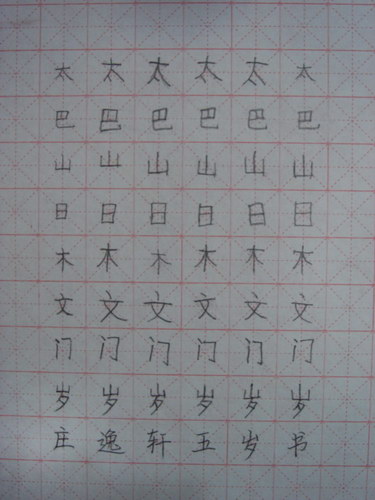 太太太太太太
巴巴巴巴巴巴
山山山山山山
日日日日日日
木木木木木木
文文文文文文
门门门门门门
岁岁岁岁岁岁
庄逸轩五岁书